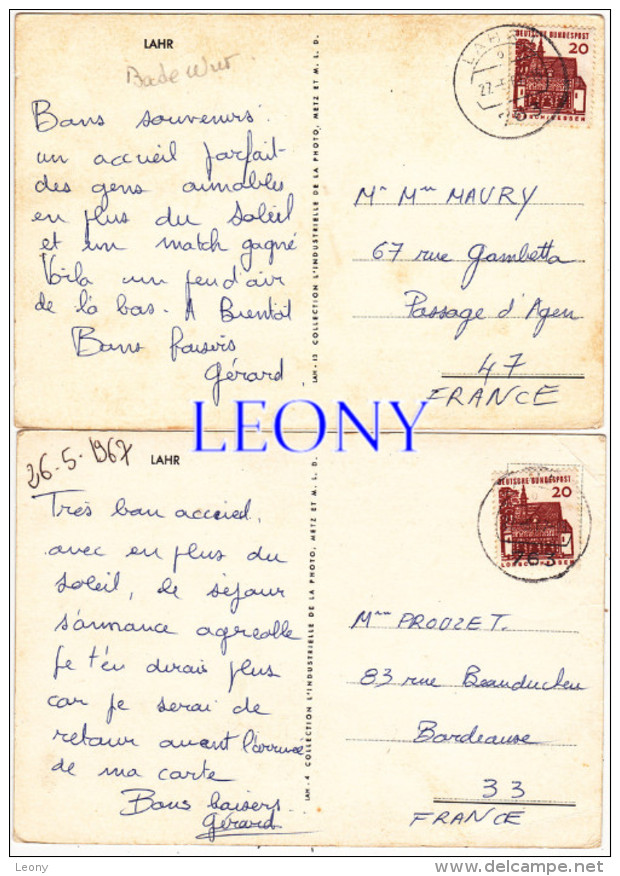 LAHR
Bade Wur
Bons souvenirs
un accueil parfait
des gens aimables
en plus du soleil
et un match gagné
Voila un peu d'air
de là bas. A Bientôt
Bons baisers
Gérard
LAH - 13 COLLECTION L'INDUSTRIELLE DE LA PHOTO, METZ ET M. L. D.
LAHR
DEUTSCHE BUNDESPOST
20
LORSCH/HESSEN
Mr Mme MAURY
67 rue Gambetta
Passage d'Agen
47
FRANCE
LEONY
26-5-1967
LAHR
Très bon accueil,
avec en plus du
soleil, le séjour
s'annonce agréable
Je t'en dirais plus
car je serai de
retour avant l'arrivée
de ma carte
Bons baisers
Gérard
LAH - 4 COLLECTION L'INDUSTRIELLE DE LA PHOTO, METZ ET M. L. D.
DEUTSCHE BUNDESPOST
20
LORSCH/HESSEN
763
Mme PROUZET.
83 rue Beauducheu
Bordeaux
33
FRANCE
Leony
www.delcampe.net